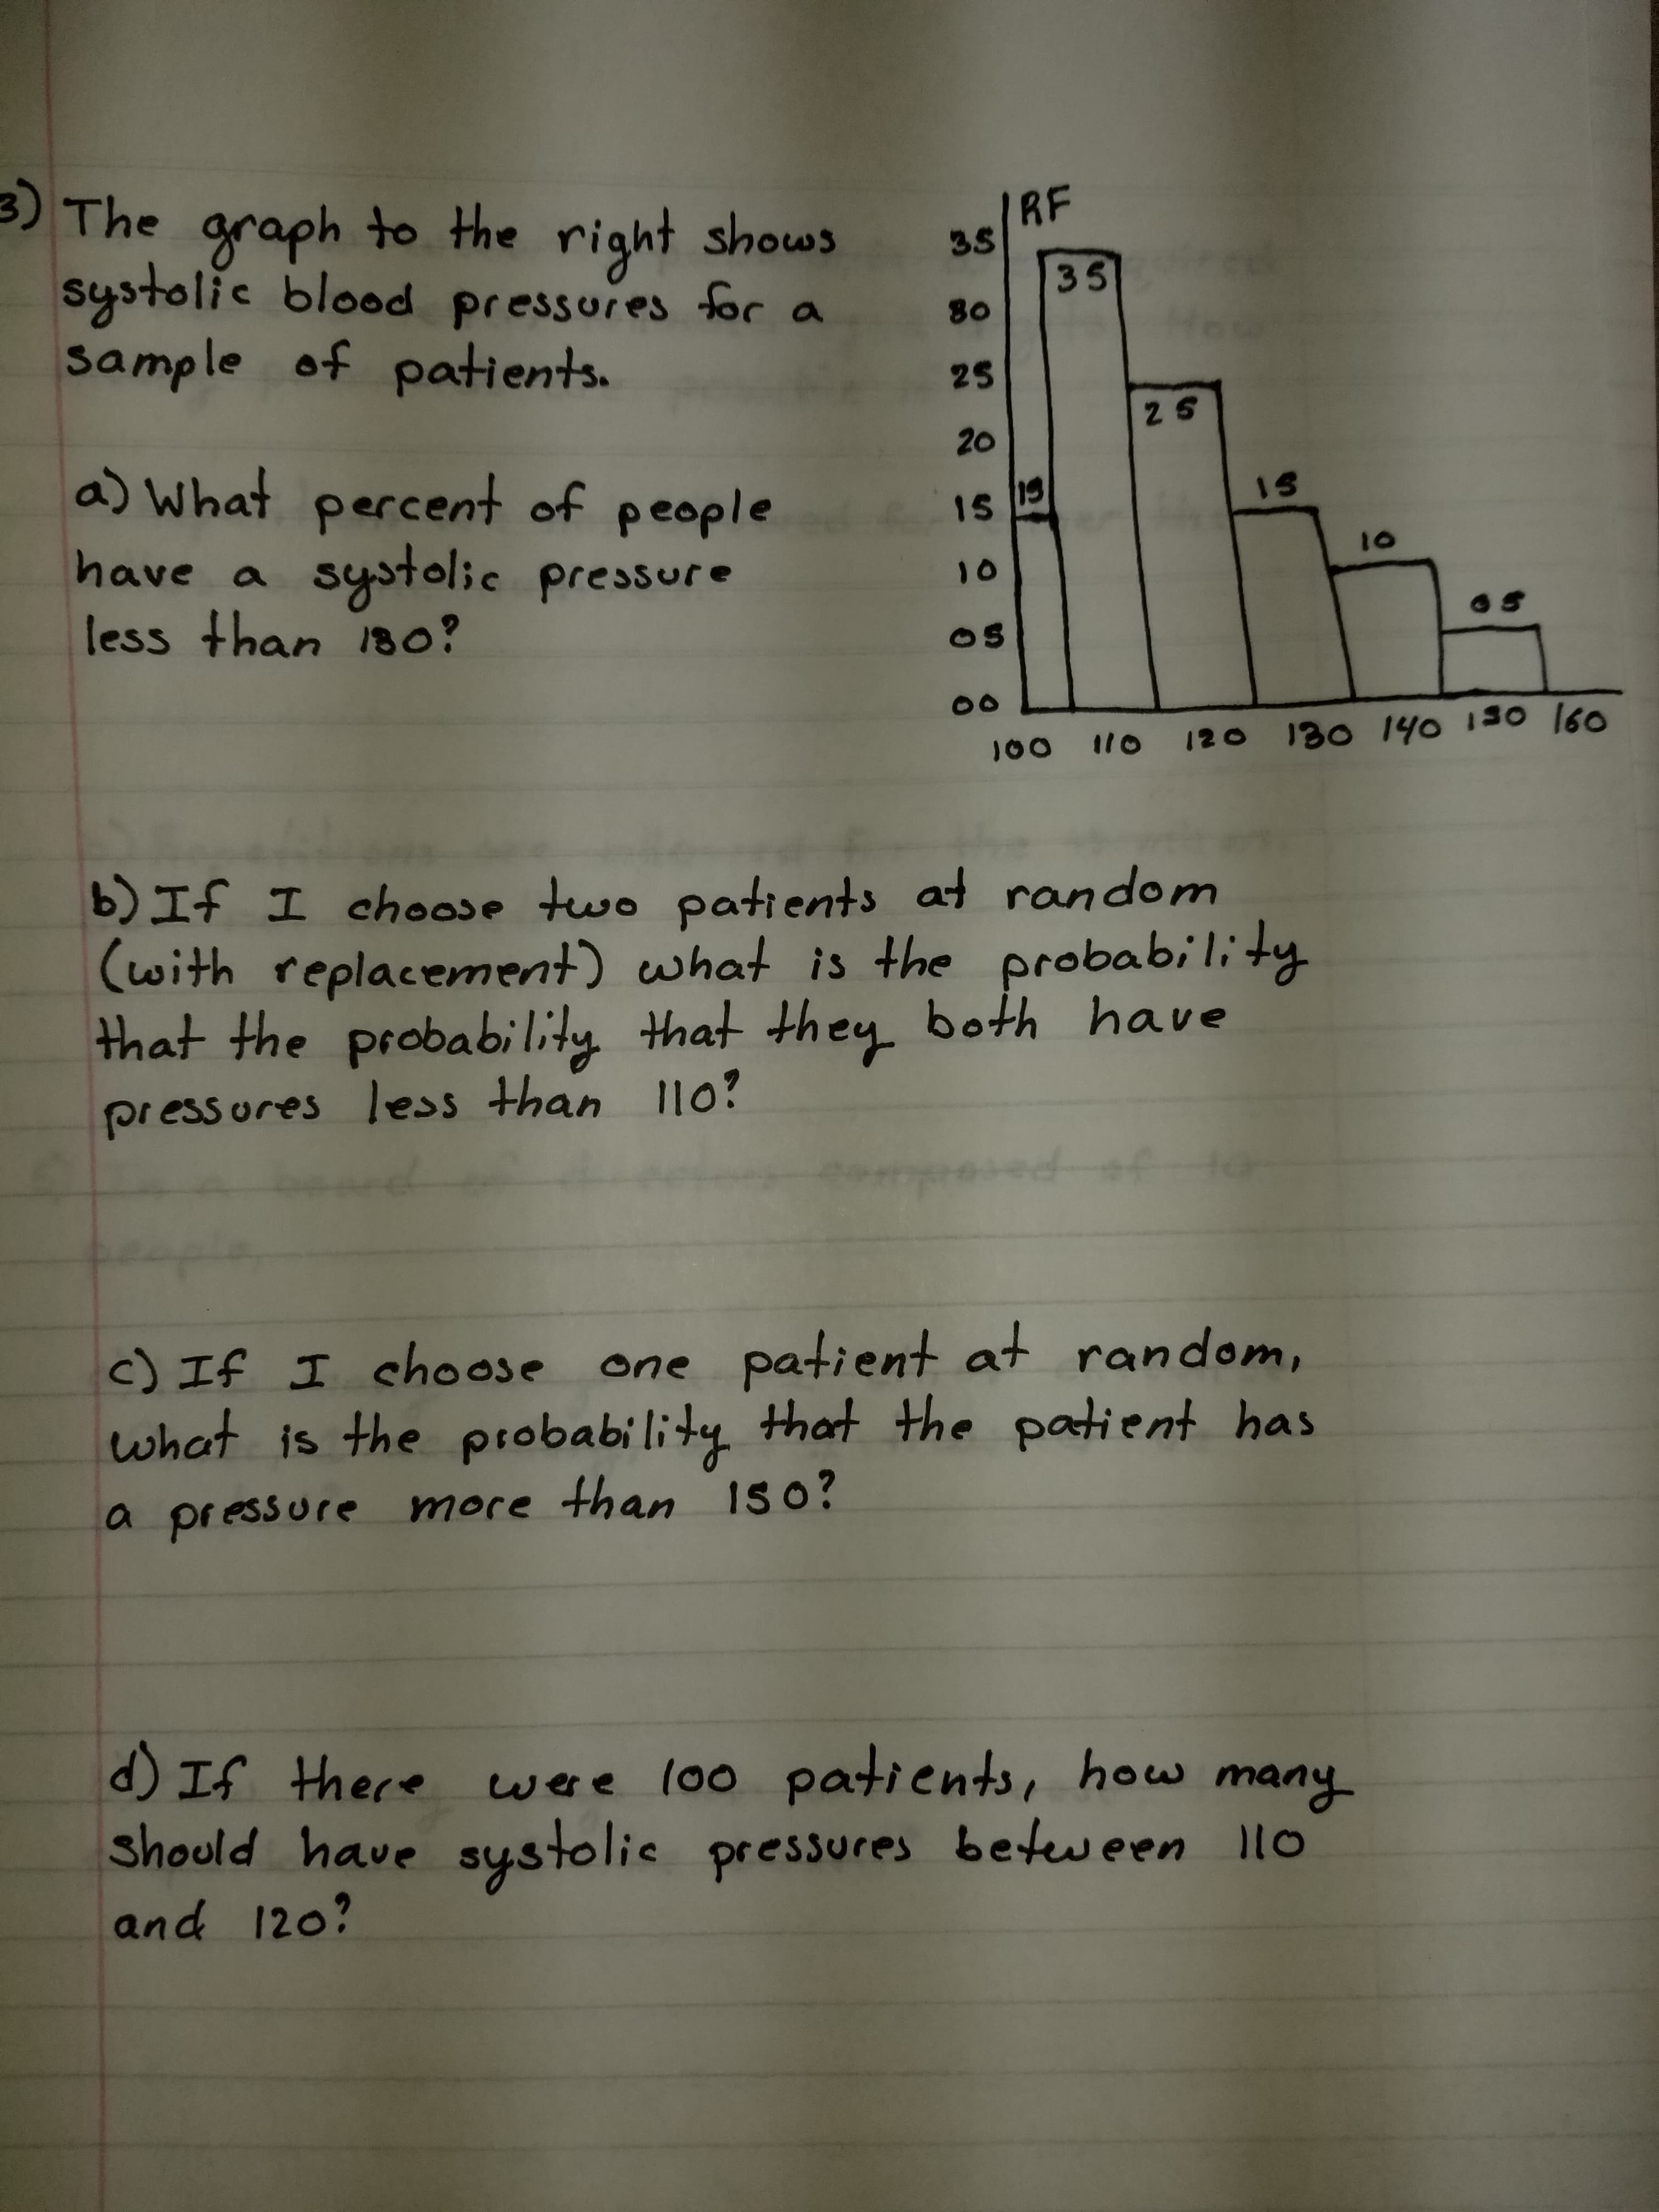 3) The graph to the right shows
systolic blood pressures for a
sample of patients.
a) What percent of people
have a systolic pressure
less than 130?
RF
35
30
25
20
15
10
05
00
15
35
25
15
10
05
100 110 120 130 140 150 160
b) If I choose two patients at random
(with replacement) what is the probability
that the probability that they both have
pressures less than 110?
c) If I choose one patient at random,
what is the probability that the patient has
a pressure more than 150?
d) If there were 100 patients, how many
should have systolic pressures between 110
and 120?